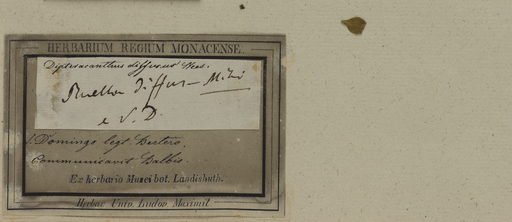 HERBARIUM REGIUM MONACENSE.
Dipteracanthus diffusus Nees.
Ruellia diffus–
e S. D.
S. Domingo legt. Bertero.
Communicavit Balbis.
Ex herbario Musei bot. Landishuth.
Herbar. Univ. Ludov. Maximil.